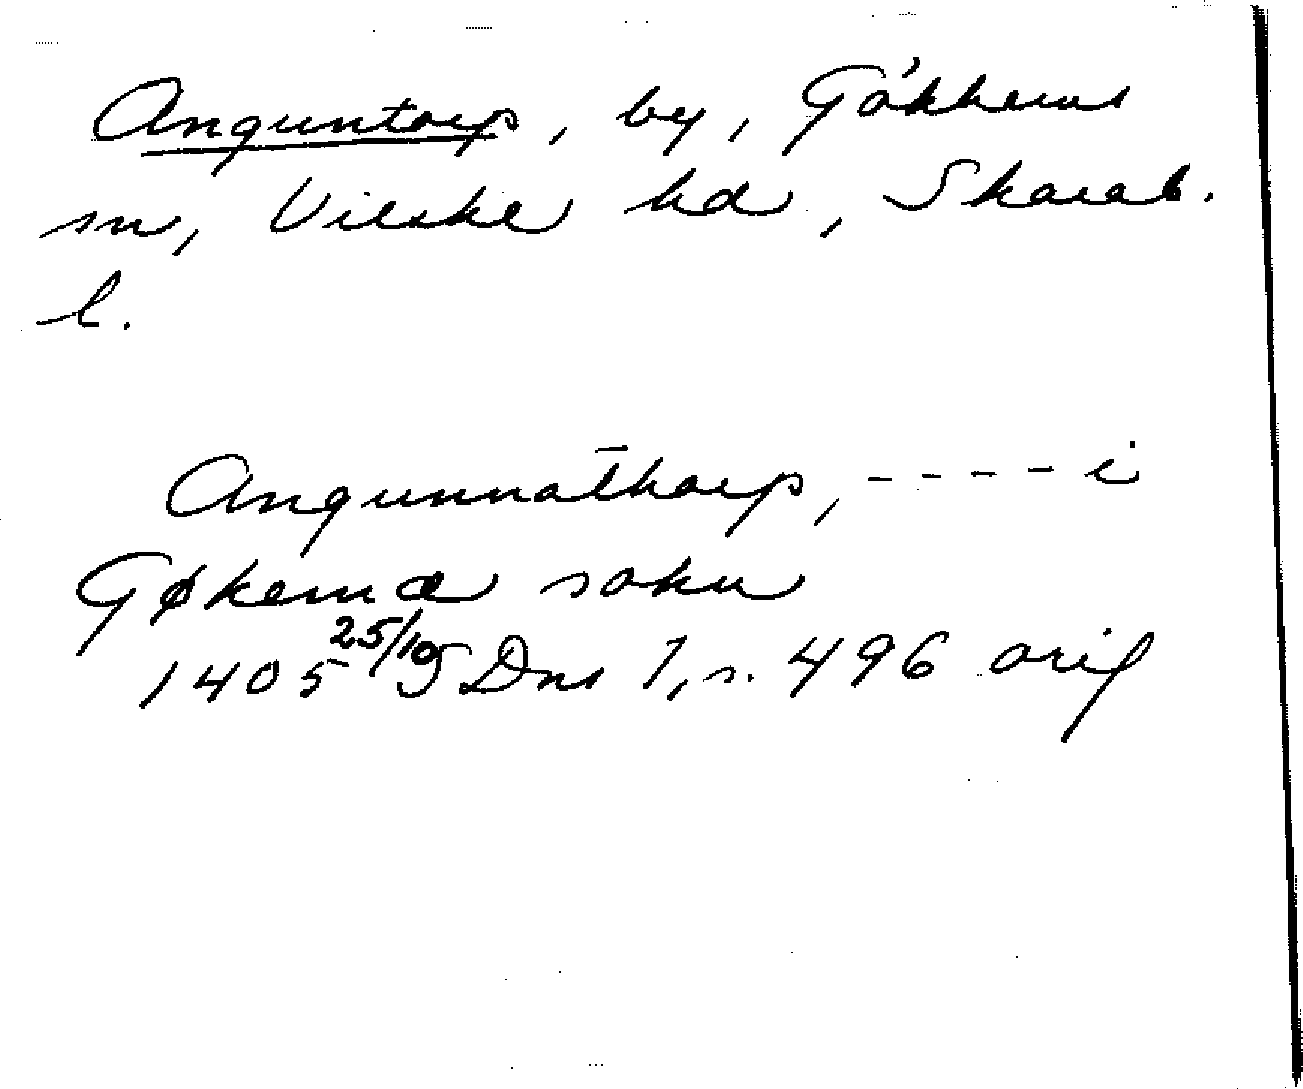 Anguntorp, by, Gökhems
sn, Vilske hd, Skarab.
l.
Angunnathorp, - - - - i
Gøkemæ sokn
1405 25/10 Dns 1, s. 496 orig